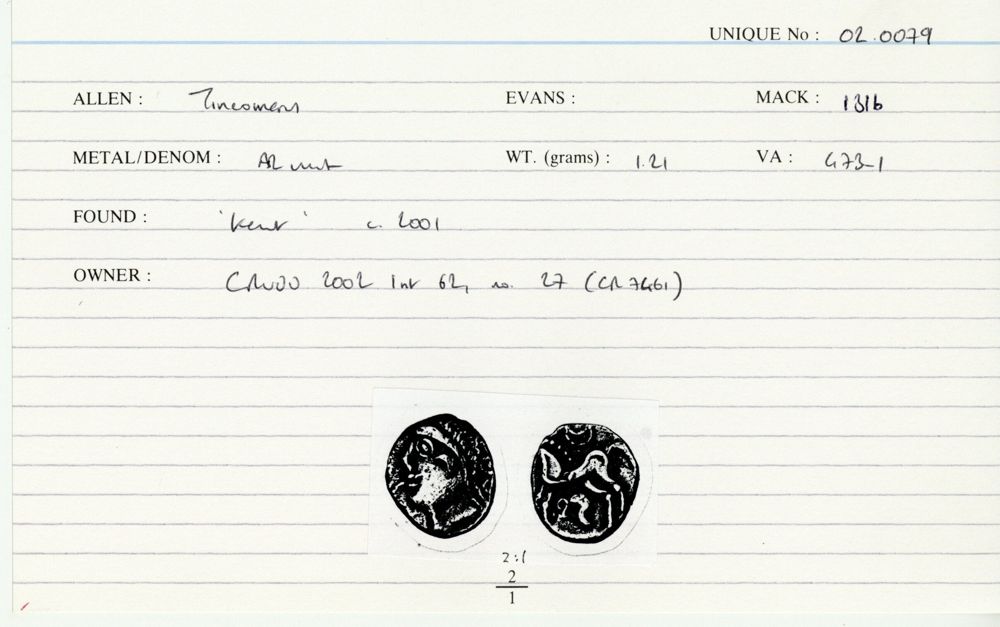 UNIQUE No : 02.0079
ALLEN : Tincomerus EVANS : MACK : 131b
METAL/DENOM : AR unit WT. (grams) : 1.21 VA : 473-1
FOUND : 'Kent' c. 2001
OWNER : CRUDD 2002 Int 62, no. 27 (CR 7461)
2:1
2
1